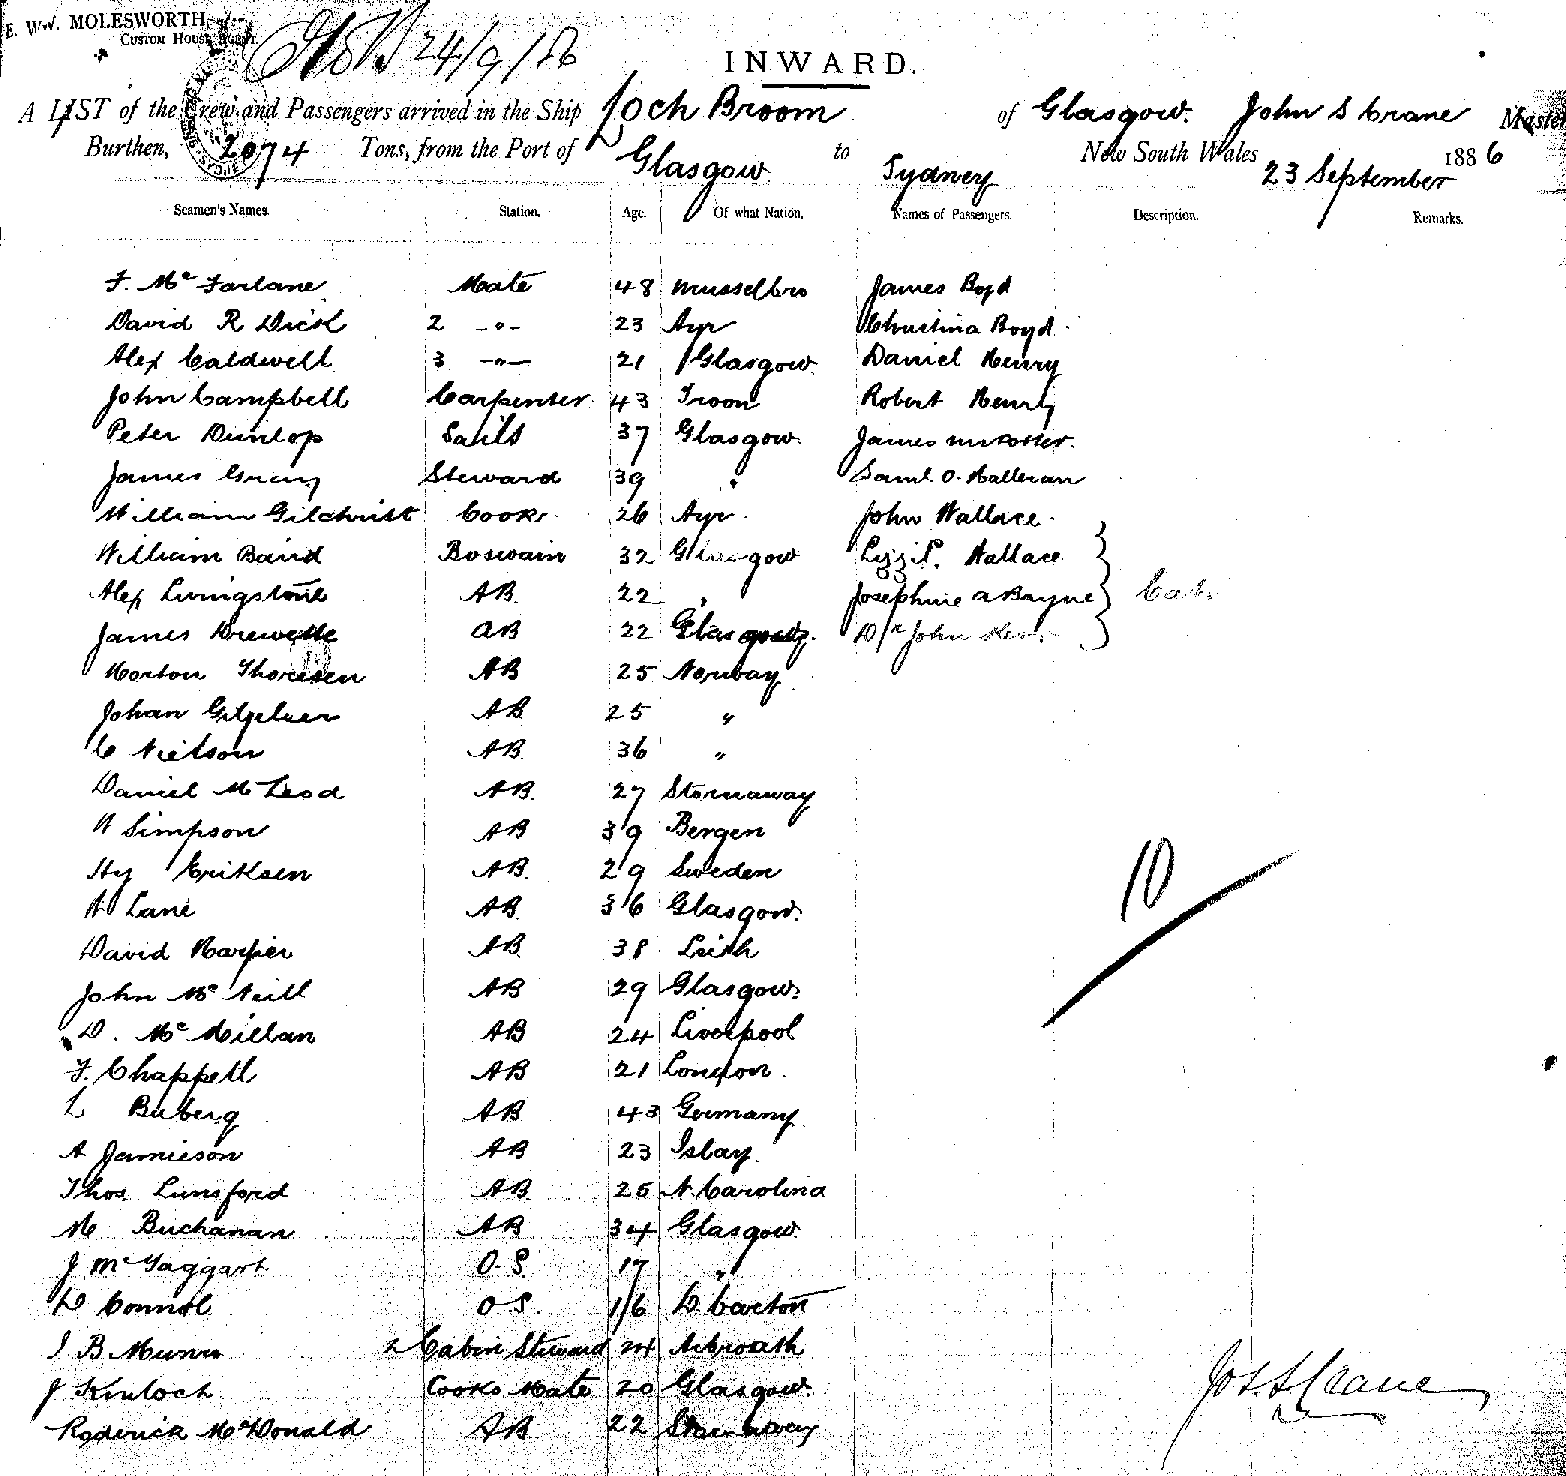 E. WM. MOLESWORTH
CUSTOM HOUSE AGENT.
24/9/86
INWARD.
A LIST of the Crew and Passengers arrived in the Ship Loch Broom of Glasgow. John S Crane Master
Burthen, 2074 Tons, from the Port of Glasgow to Sydney New South Wales 23 September 1886
Seamen's Names. Station. Age. Of what Nation. Names of Passengers. Description. Remarks.
F. Mc Farlane Mate 48 Musselbro James Boyd
David R Dick 2 -"- 23 Ayr Christina Boyd
Alex Caldwell 3 -"- 21 Glasgow Daniel Henry
John Campbell Carpenter 43 Troon Robert Henry
Peter Dunlop Sails 37 Glasgow James
James Gray Steward 39 " Saml. O. Halleran
William Gilchrist Cook 26 Ayr John Wallace
William Baird Boswain 32 Glasgow Wallace
Alex Livingstone AB 22 " Josephine A Bayne
James Drewette AB 22 Dr John
Morton Thoresen AB 25 Norway
Johan AB 25 "
C Nielson AB 36 "
Daniel McLeod AB 27 Stornaway
A Simpson AB 39 Bergen
Hy Eriksen AB 29 Sweden
A Lane AB 36 Glasgow
David Harper AB 38 Leith
John Mc Neill AB 29 Glasgow
D. Mc Millan AB 24 Liverpool
F. Chappell AB 21 London
L AB 43 Germany
A Jamieson AB 23 Islay
Thos Lunsford AB 25 N Carolina
M Buchanan AB 34 Glasgow
J McTaggart O.S. 17 "
D Connol O S. 16
J B Munn 2 Cabin Steward 24 Arbroath
J Kinloch Cooks Mate 20 Glasgow
Roderick McDonald AB 22 Stornaway
10
Crane